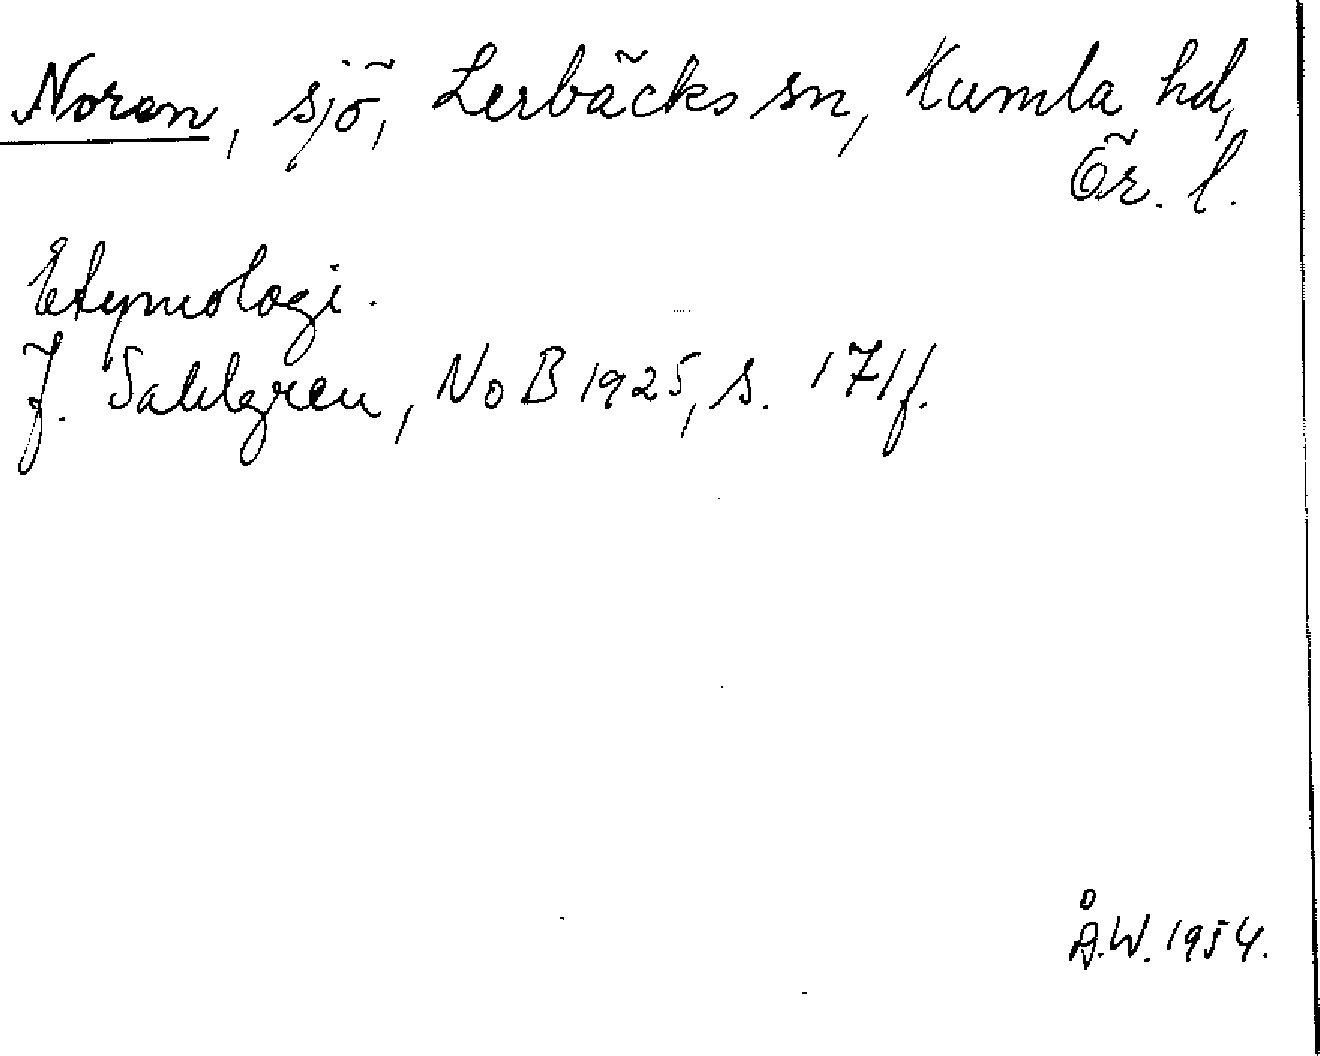 Noren, sjö, Lerbäcks sn, Kumla hd,
Ör. l.
Etymologi.
J. Sahlgren, NoB 1925, s. 171f.
Å.W. 1954.